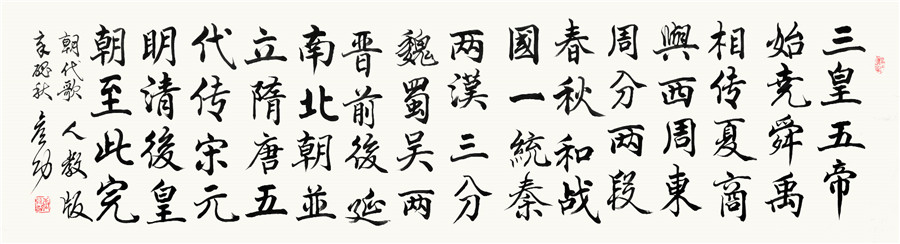 三皇五帝
始尭舜禹
相传夏商
與西周東
周分两段
春秋和战
國一統秦
两漢三分
魏蜀吴两
晋前後延
南北朝並
立隋唐五
代传宋元
明清後皇
朝至此完
朝代歌 人教版
辛 秋